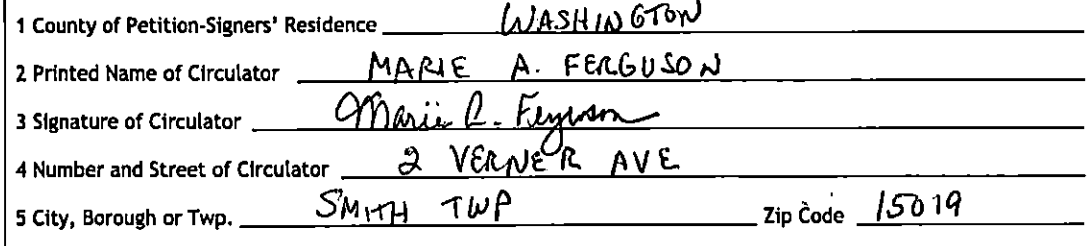 1 County of Petition-Signers' Residence WASHINGTON
2 Printed Name of Circulator MARIE A. FERGUSON
3 Signature of Circulator Marie A. Ferguson
4 Number and Street of Circulator 2 VERNER AVE
5 City, Borough or Twp. SMITH TWP Zip Code 15019